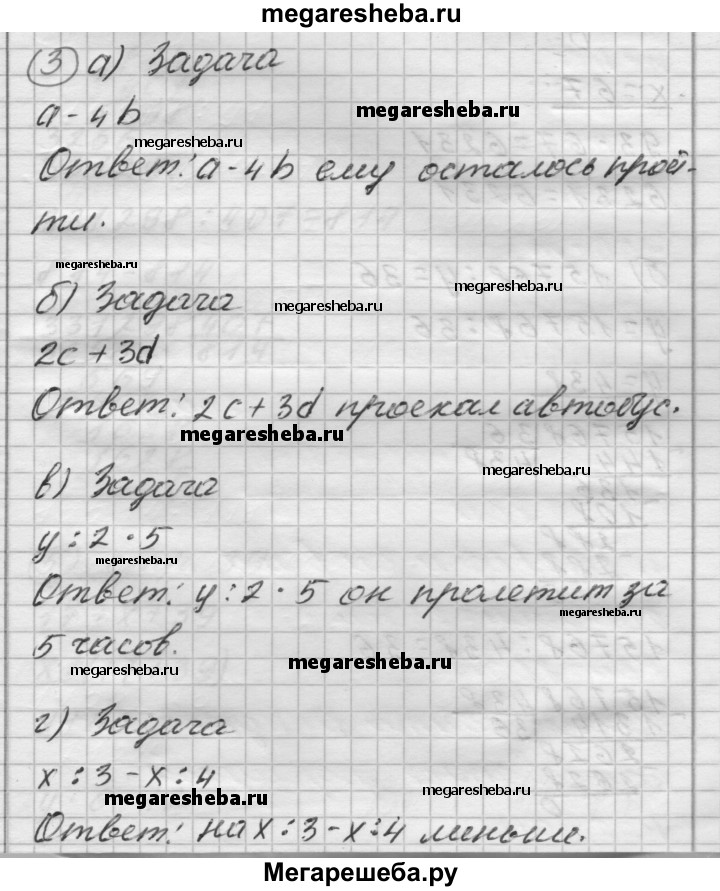 megaresheba.ru
3 а) Задача
а - 4b
megaresheba.ru
megaresheba.ru
Ответ: а - 4b ему осталось прой-
ти.
megaresheba.ru
megaresheba.ru
б) Задача
megaresheba.ru
2c + 3d
Ответ: 2c + 3d проехал автобус.
megaresheba.ru
megaresheba.ru
в) Задача
y : 2 · 5
megaresheba.ru
Ответ: y : 2 · 5 он пролетит за
megaresheba.ru
5 часов.
megaresheba.ru
megaresheba.ru
г) Задача
x : 3 - x : 4
megaresheba.ru
megaresheba.ru
Ответ: на x : 3 - x : 4 меньше.
Мегарешеба.ру